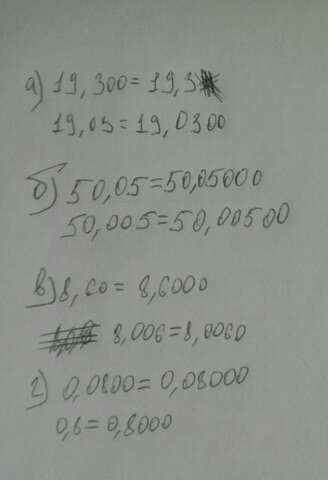 а) 19,300 = 19,3
19,03 = 19,0300
б) 50,05 = 50,05000
50,005 = 50,00500
в) 8,60 = 8,6000
8,006 = 8,0060
г) 0,0800 = 0,08000
0,8 = 0,8000